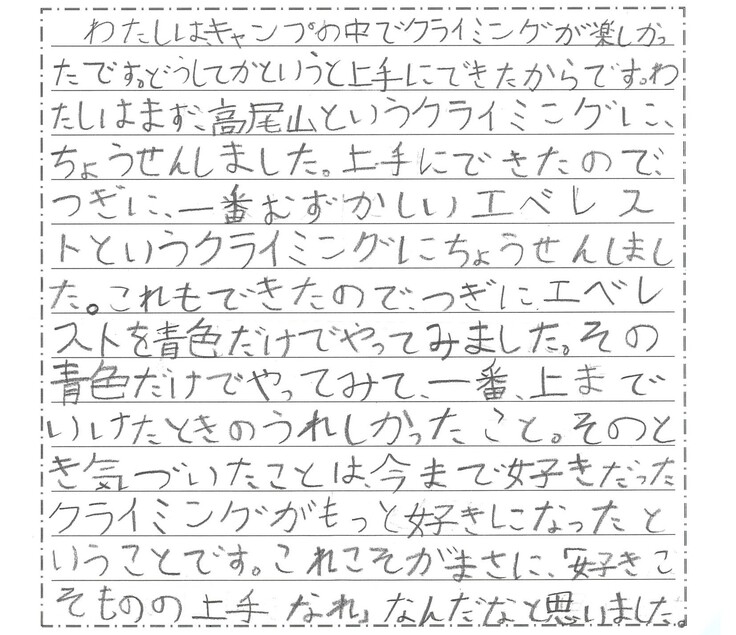 わたしは、キャンプの中でクライミングが楽しかっ
たです。どうしてかというと上手にできたからです。わ
たしはまず、高尾山というクライミングに、
ちょうせんしました。上手にできたので、
つぎに、一番むずかしいエベレス
トというクライミングにちょうせんしまし
た。これもできたので、つぎに、エベレ
ストを青色だけでやってみました。その
青色だけでやってみて、一番、上まで
いけたときのうれしかったこと。そのと
き気づいたことは、今まで好きだった
クライミングがもっと好きになったと
いうことです。これこそがまさに、「好きこ
そものの上手なれ」なんだなと思いました。